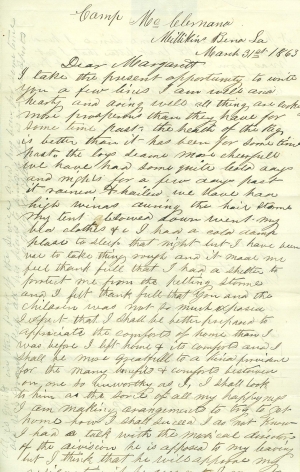 Camp Mc Clernand
Millikins Bend La
March 31st 1863
Dear Margarett
I take the present opportunity to write
you a few lines I am well and
hearty and doing well all things are
more prosperous than they have for
some time past the health of the Regt
is better than it has been for some time
past the boys seame more chearfull
we have had some quite cold days
and nights for a few days past
it rained & hailed we have had
high winds during the hail storm
my tent blowed down went my
bed clothes & I had a cold damp
place to sleep that night but I have been
use to take things rough and it made me
feel thank full that I had a shelter to
protect me from the pelting storme
and I felt thank full that you and the
children was not so much exposed
I expect that I shall be better prepared to
appreciate the comforts of home than I
was before I left home & its comforts and I
shall be more greatfull to a kind providence
for the many benefits & comforts bestowed
on one so unworthy as I, I shall look
to him as the source of all my happyness
I am making arrangements to try to get
home how I shall succeed I do not know
I had a talk with the medical director
of the division he is opposed to my leaving
but I think that he will approve my